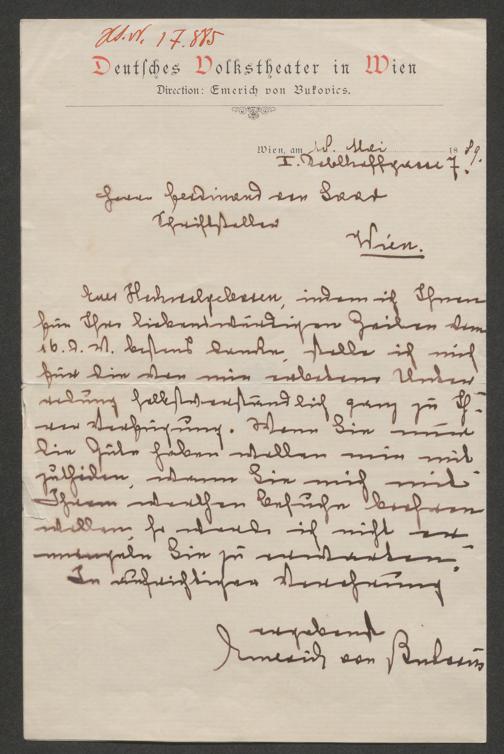 H.N. 17.885
Deutsches Volkstheater in Wien
Direction: Emerich von Bukovics.
Wien, am 18. Mai 1889.
I. Doblhoffgasse 7.
Herrn Ferdinand von Saar
Schriftsteller
Wien.
Euer Hochwolgeboren, indem ich Ihnen
für Ihre liebenswürdigen Zeilen vom
16. d. M. bestens danke, stelle ich mich
für die von mir erbetene Unter
redung selbstverständlich ganz zu Ih-
rer Verfügung. Wenn Sie nur
die Güte haben wollen mir mit
zutheilen, wann Sie mich mit
Ihrem werthen Besuche beehren
wollen, so werde ich nicht er
mangeln Sie zu erwarten.
In aufrichtiger Verehrung
ergebenst
Emerich von Bukovics